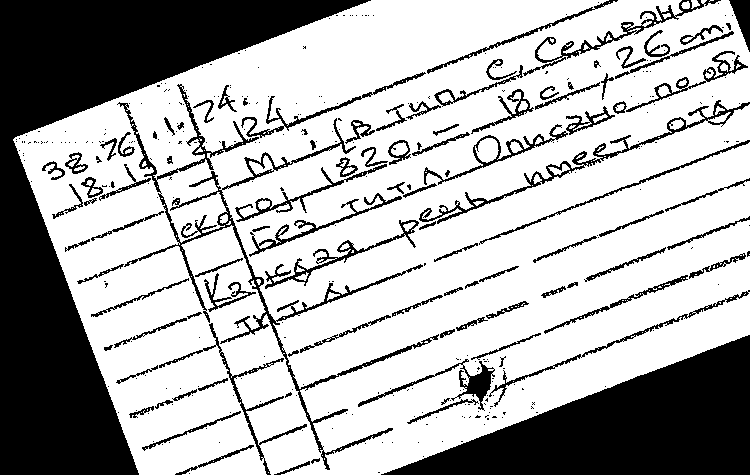 38.76.1.24.
18.15.2.124.
. — М. : [в тип. С. Селиванов
ского], 1820. — 18 с. ; 26 см.
Без тит. л. Описано по обл
Каждая речь имеет отд
тит. л.